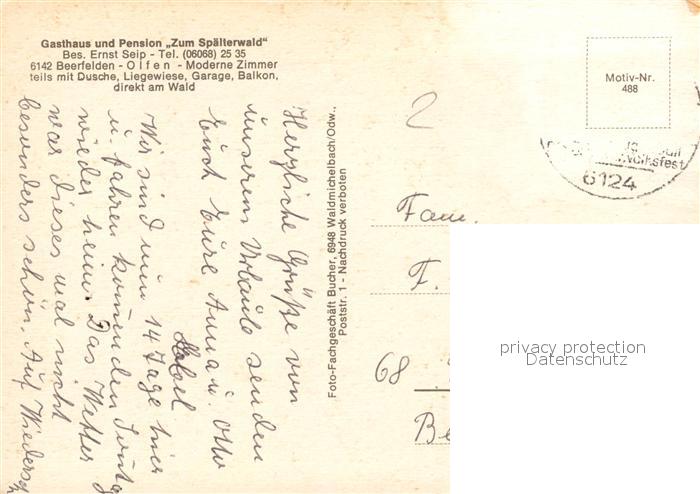 Gasthaus und Pension „Zum Spälterwald"
Bes. Ernst Seip - Tel. (06068) 25 35
6142 Beerfelden - Olfen - Moderne Zimmer
teils mit Dusche, Liegewiese, Garage, Balkon,
direkt am Wald
Herzliche Grüße von
unserem Urlaub senden
Euch Eure Anna u. Otto
Wir sind nun 14 Tage hier
u. fahren kommenden
wieder heim. Das Wetter
war dieses mal nicht
besonders schön. Auf Wiederseh
Foto-Fachgeschäft Bucher, 6948 Waldmichelbach/Odw.,
Poststr. 1 - Nachdruck verboten
Motiv-Nr.
488
Volksfest
6124
2
Fam.
F.
68
Be
privacy protection
Datenschutz